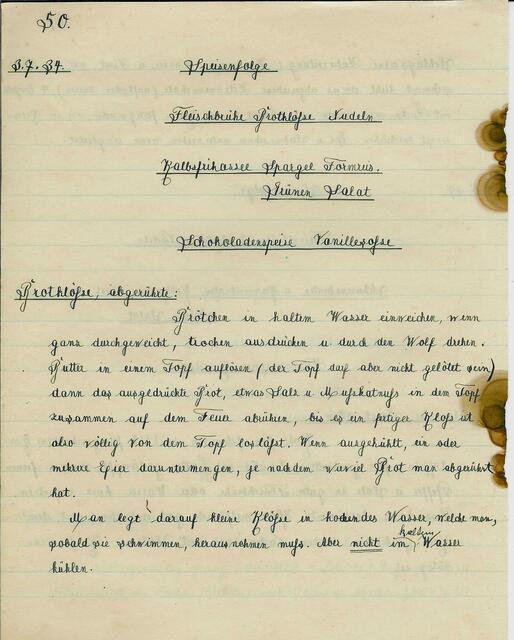 50.
3.7.34. Speisenfolge
Fleischbrühe Brothlöse Nudeln
Kalbsfrikassee Spargel Formreis.
Grünen Salat
Schokoladenspeise Vanillesoße
Brothlöse, abgerührte:
Brötchen in kaltem Wasser einweichen, wenn
ganz durchgeweicht, trocken ausdrücken u. durch den Wolf drehen.
Butter in einem Topf auflösen (der Topf darf aber nicht gelötet sein)
dann das ausgedrückte Brot, etwas Salz u. Muskatnuß in den Topf
zusammen auf dem Feuer abrühren, bis es ein fertiger Kloß ist
also völlig von dem Topf losläßt. Wenn ausgekühlt, ein oder
mehrere Eier daruntermengen, je nachdem wieviel Brot man abgerührt
hat.
Man legt darauf kleine Klöße in kochendes Wasser, welche man,
sobald sie schwimmen, herausnehmen muß. Aber nicht im kaltem Wasser
kühlen.